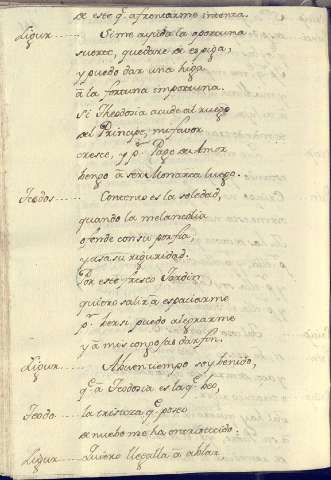 de este q.̃ afrontarme intenta.
Ligur..... Si me ayuda la oportuna
suerte, quedare de espiga,
y puedo dar una higa
â la fortuna importuna.
Si Theodosia acude al ruego
del Principe, mi favor
cresce, y p.r Page de Amor
bengo â ser Monarca luego.
Teodos..... Contento es la soledad,
quando la melancolia
ofende con su porfia,
y asa su riguridad.
Por este fresco Jardin
quiero salir â espaciarme
p.r ber si puedo alegrarme
y â mis congojas dar fin.
Ligur..... A buen tiempo soy benido,
q.e â Teodosia es la q.e beo,
Teodo..... la tristeza q.e poseo
de nuebo me ha entristecido.
Ligur..... Quiero llegalla â ablar